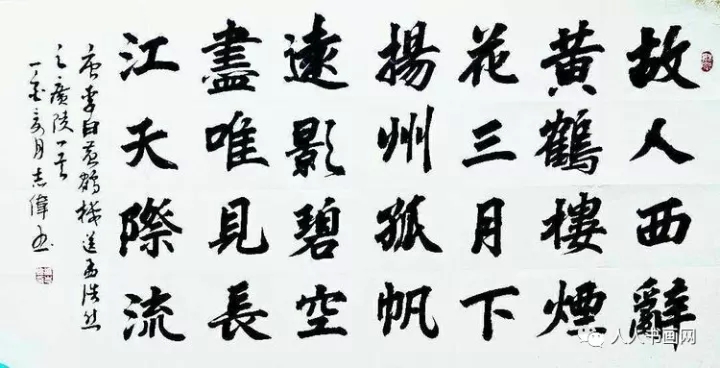 故人西辭
黄鶴樓煙
花三月下
揚州孤帆
遠影碧空
盡唯見長
江天際流
唐李白黄鶴樓送孟浩然
之廣陵一首
月志偉书
人人书画网